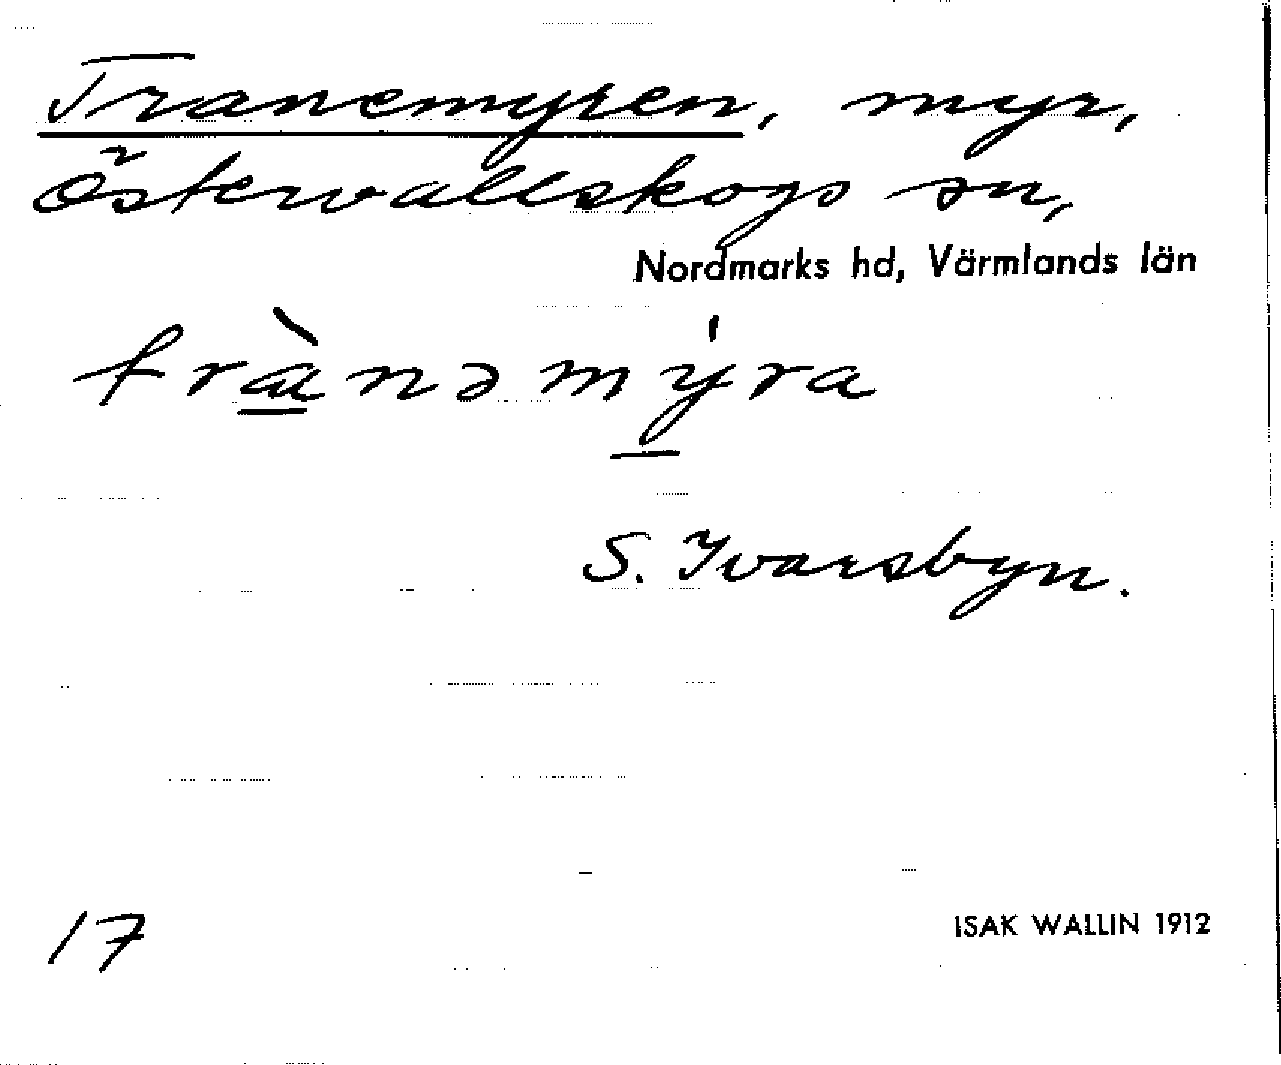 Tranemyren, myr,
Östervallskogs sn,
Nordmarks hd, Värmlands län
trànəmýra
S. Ivarsbyn.
17
ISAK WALLIN 1912